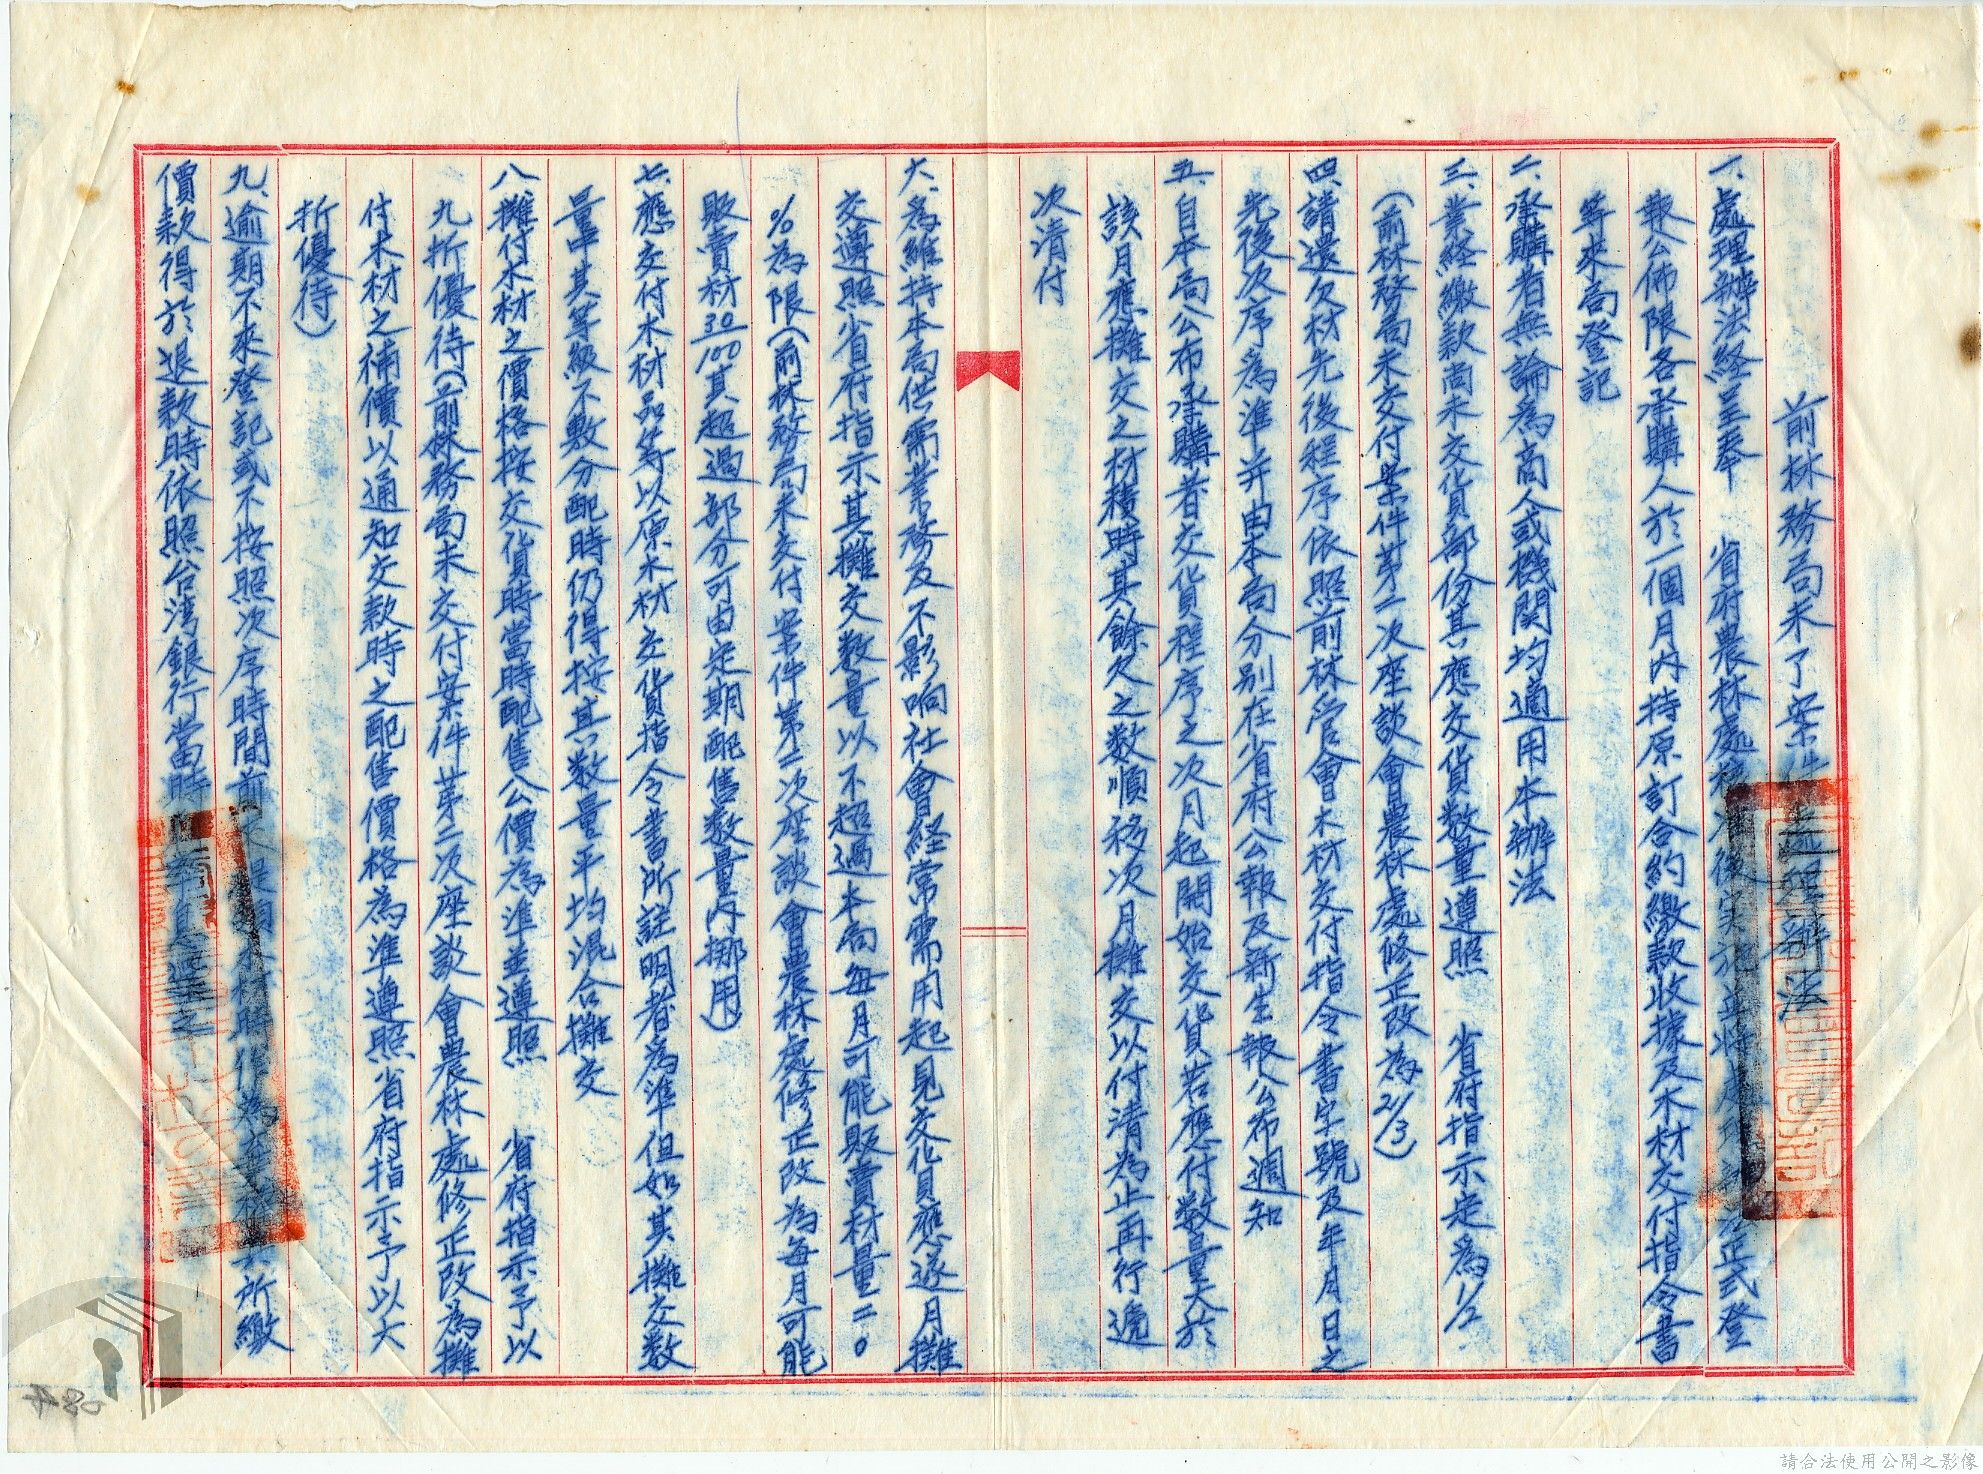 前林務局未了案件處理辦法
一、處理辦法経呈奉　省府農林處核准後実施並將處理辦法正式登
報公佈限各承購人於一個月內持原訂合約繳款收據及木材交付指令書
等來局登記
二、承購者無論為商人或機関均適用本辦法
三、業経繳款尚未交貨部份其應交貨数量遵照　省府指示定為1/2
（前林務局未交付案件第二次座談會農林處修正改為2/3）
四、請還欠材先後程序依照前林管會木材交付指令書字號及年月日之
先後次序為準并由本局分别在省府公報及新生報公布週知
五、自本局公布承購者交貨程序之次月起開始交貨若應付数量大於
該月應攤交之材積時其餘欠之数順移次月攤交以付清為止再行遞
次清付
六、為維持本局供需業務及不影响社會経常需用起見交貨應逐月攤
交遵照省府指示其攤交数量以不超過本局每月可能販賣材量二〇
％為限（前林務局未交付案件第二次座談會農林處修正改為每月可能
販賣材30/100其超過部分可由定期配售数量内挪用）
七、應交付木材品等以原木材交貨指令書所註明者為準但如其攤交数
量中其等級不敷分配時仍得按其数量平均混合攤交
八、攤付木材之價格按交貨時當時配售公價為準並遵照　省府指示予以
九折優待（前林務局未交付案件第二次座談會農林處修正改為攤
付木材之補價以通知交款時之配售價格為準遵照省府指示予以六
折優待）
九、逾期不來登記或不按照次序時間前來提領木材時作為棄權其所繳
價款得於退款時依照台湾銀行當時利率息退之
A80
請合法使用公開之影像